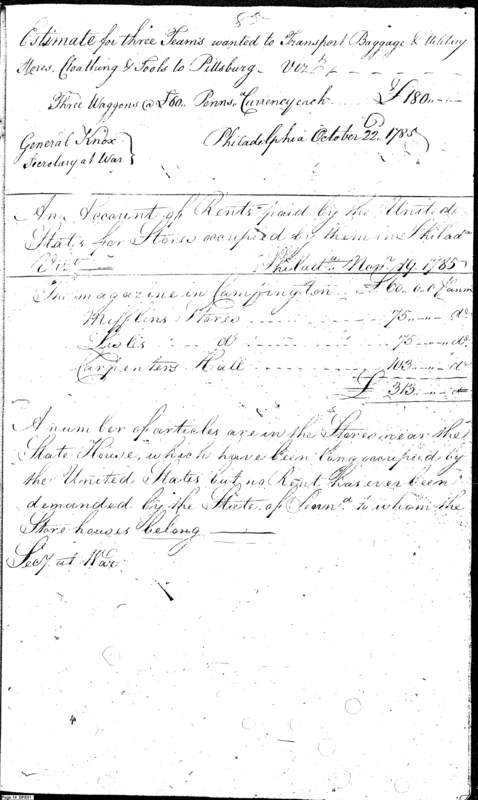 85
Estimate for three Teams wanted to Transport Baggage & Military
Stores, Cloathing & Tools to Pittsburg - Vizt
Three Waggons @ £60.. Penna Currency each ..... £180.. -
General Knox
Secretary at War
Philadelphia October 22d 1785
An Account of Rents paid by the United
States for Stores occupied by them in Philada
Vizt Philada Novr 19. 1785
The magazine in Campington .. £60..0..0 Pann
Mifflins Stores ........ 75..,,..,, do
Leslis do ........ 75..,,..,, do
Carpenters Hall ........ 103..,,..,, do
£ 313..,,..,,
A number of articles are in the Stores near the
State House, which have been long occupied by
the United States but no Rent has ever been
demanded by the State of Penna to whom the
Store houses belong
Secy at War
Page 16